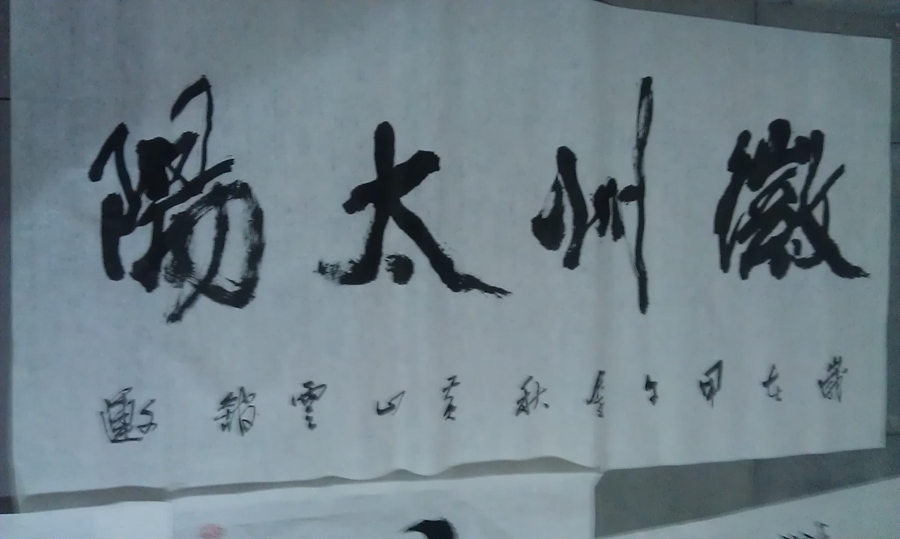 徽州太陽
歲在甲午金秋黃山雲銷